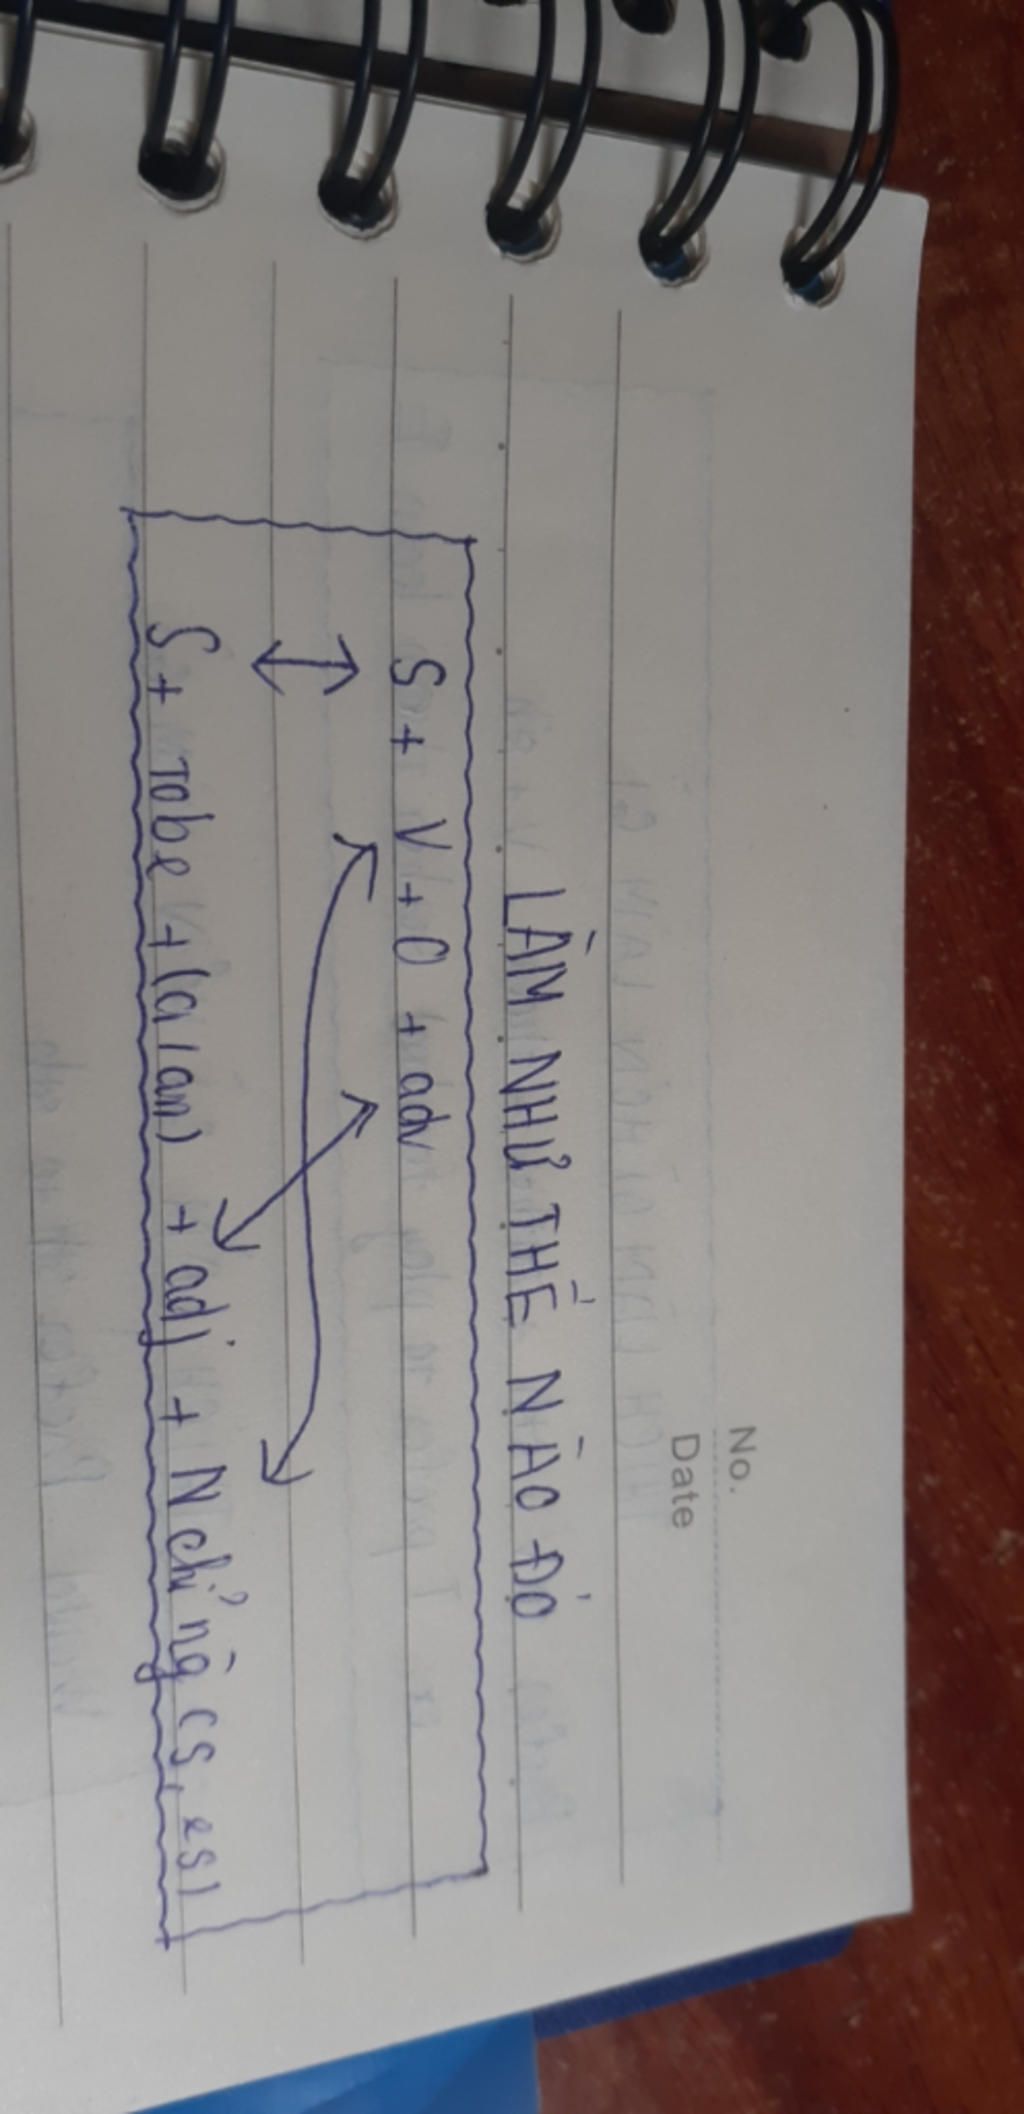 No.
Date
LÀM NHƯ THẾ NÀO ĐÓ
S + V + O + adv
S + Tobe + (a/an) + adj + N chỉ ng̀ (s, es)